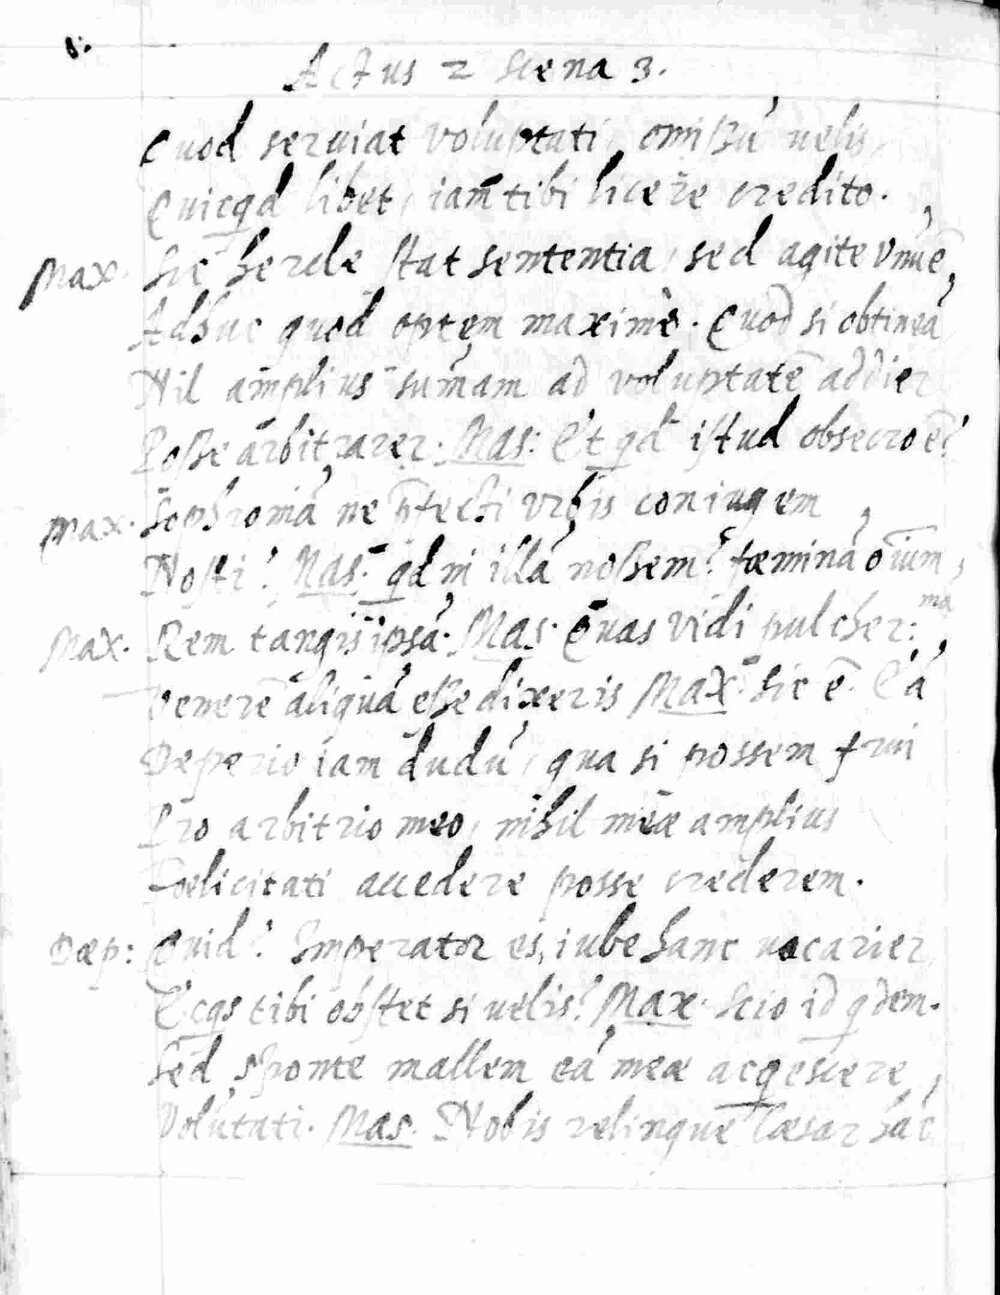 Actus 2 Scena 3.
Quod seruiat voluptati, omißũ uelis
Quicqd libet, iam tibi licere credito.
Max. Sic hercle stat sententia, sed agite vnũ ẽ,
Adhuc quod optem maximè. Quod si obtineã
Nil amplius summam ad voluptatẽ addier
Poße arbitrarer. Mas: Et qd istud obsecro ẽ?
Max. Sophroniã ne p̃fecti vrbis coniugem
Nosti? Mas: qd ni illã noßem? fœminã oĩum,
Max. Rem tangis ipsã. Mas. Quas vidi pulcher: ma
Venerẽ aliquã eße dixeris Max. Sic ẽ. Eã
Deperio iam dudũ, qua si possem frui
Pro arbitrio meo, nihil meæ amplius
Fœlicitati accedere posse crederem.
Dæp: Quid? Imperator es, iube hanc uocarier,
Ecqs tibi obstet si uelis? Max. Scio id qdem.
Sed sponte mallem eã meæ acqescere,
Volũtati. Mas. Nobis relinque Cæsar hãc